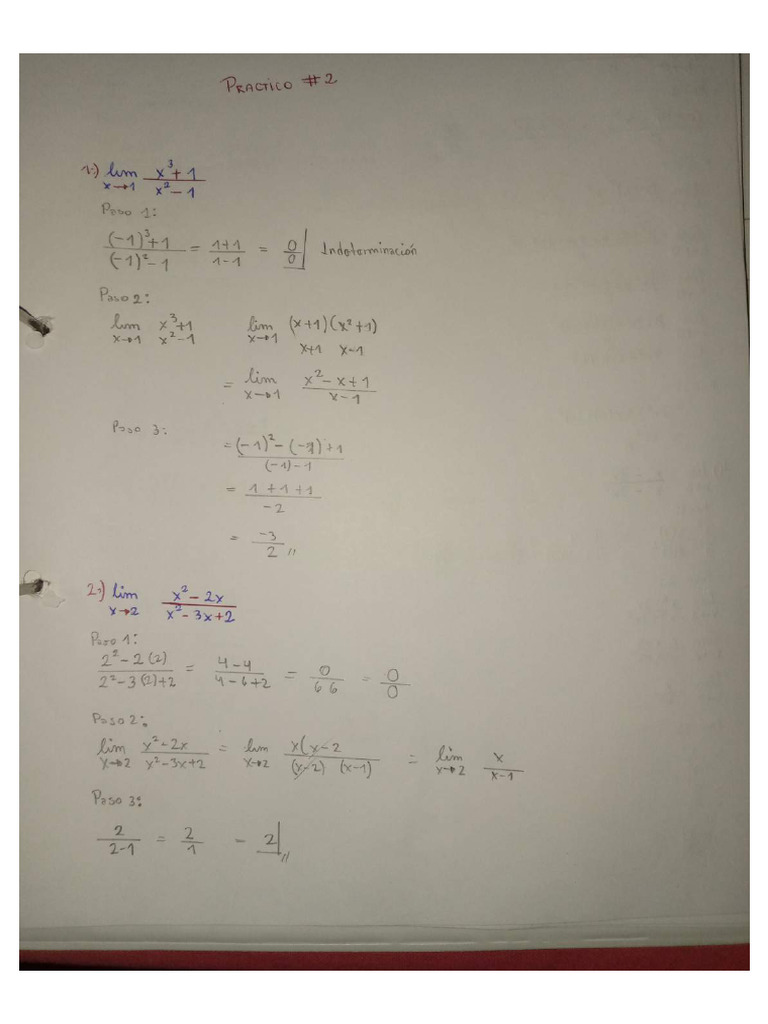 PRACTICO #2
1:) lim x→1 x³+1 / x²-1
Paso 1:
(-1)³+1 / (-1)²-1 = 1+1 / 1-1 = 0/0 Indeterminación
Paso 2:
lim x→1 x³+1 / x²-1 lim x→1 (x+1)(x²+1) / x+1 x-1
= lim x→1 x²-x+1 / x-1
Paso 3:
= (-1)²-(-1)+1 / (-1)-1
= 1+1+1 / -2
= -3/2 //
2:) lim x→2 x²-2x / x²-3x+2
Paso 1:
2²-2(2) / 2²-3(2)+2 = 4-4 / 4-6+2 = 0 / 6 6 = 0/0
Paso 2:
lim x→2 x²-2x / x²-3x+2 = lim x→2 x(x-2 / (x-2) (x-1) = lim x→2 x / x-1
Paso 3:
2 / 2-1 = 2/1 - 2 //